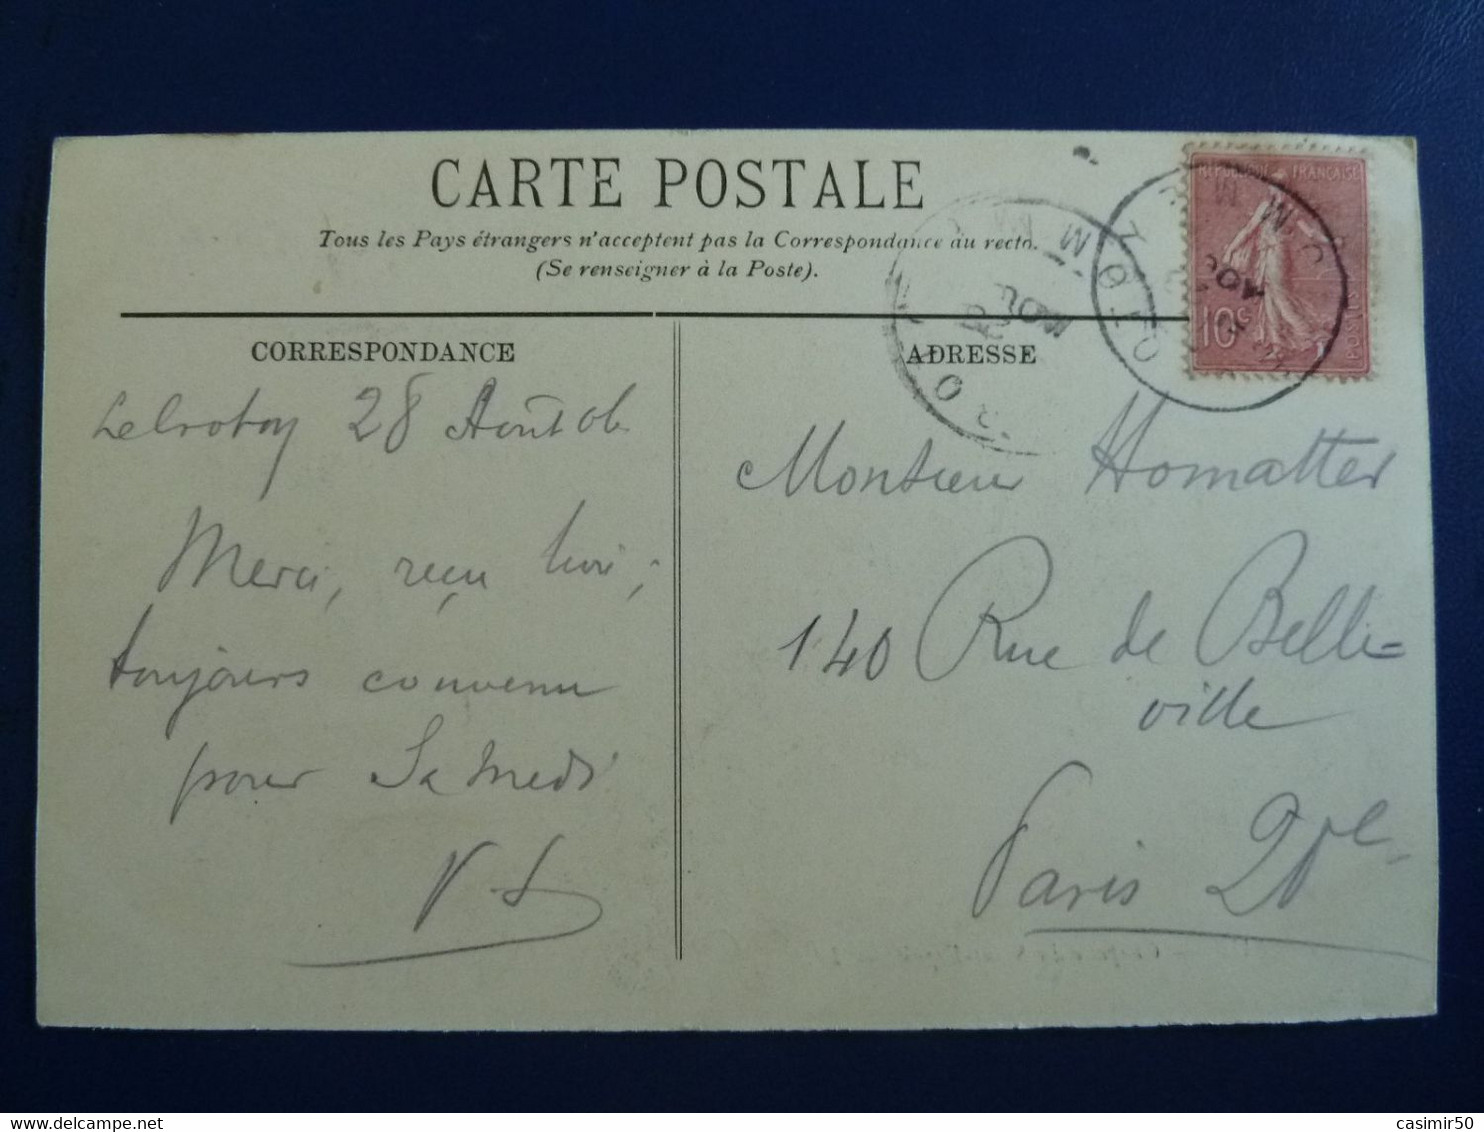 CARTE POSTALE
Tous les Pays étrangers n'acceptent pas la Correspondance au recto.
(Se renseigner à la Poste).
CORRESPONDANCE
ADRESSE
REPUBLIQUE FRANÇAISE
10c
POSTES
Le Crotoy 28 Août 06
Merci, reçu livre ;
toujours convenu
pour Samedi
V. L
Monsieur Homatter
140 Rue de Belle=
ville
Paris 20e
casimir50